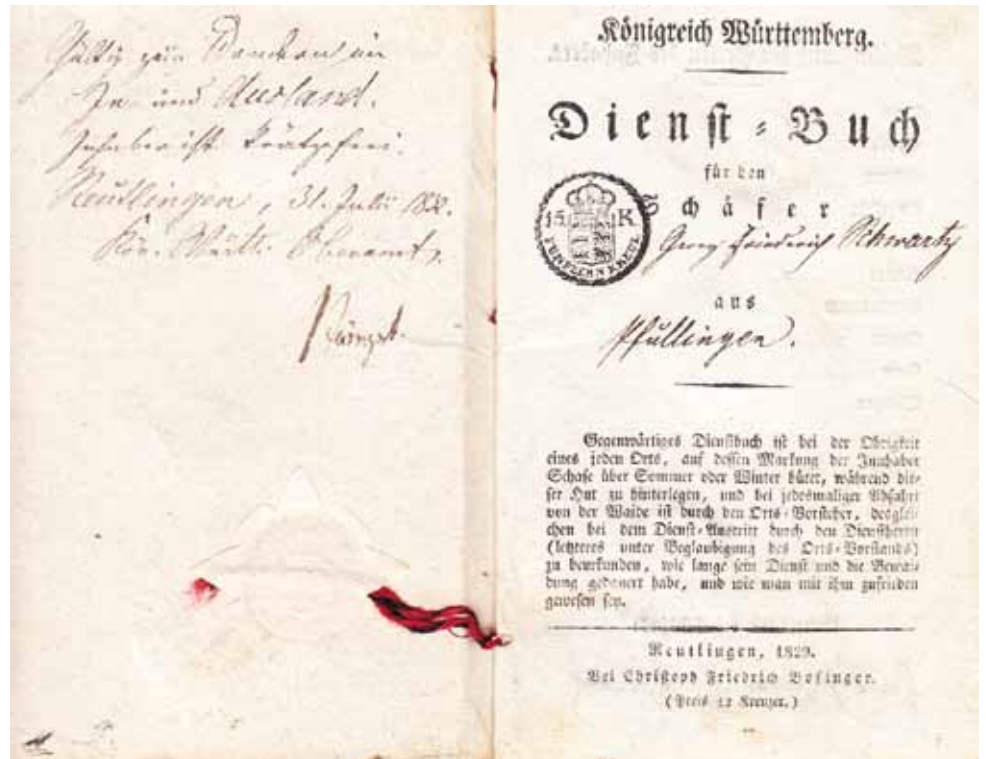 Gültig zum Wandern im
In- und Ausland.
Inhaber ist krätzefrei.
Reutlingen, 31. Juli
Kön. Württ. Oberamt.
Königreich Württemberg.
Dienst-Buch
für den
Schäfer
15 K
FUNFZEHN KREUZ
Georg Friederich Schwartz
aus
Pfullingen.
Gegenwärtiges Dienstbuch ist bei der Obrigkeit
eines jeden Orts, auf dessen Markung der Innhaber
Schafe über Sommer oder Winter hütet, während die-
ser Hut zu hinterlegen, und bei jedesmaliger Abfahrt
von der Waide ist durch den Orts-Vorsteher, desglei-
chen bei dem Dienst-Austritt durch den Dienstherrn
(letzteres unter Beglaubigung des Orts-Vorstands)
zu beurkunden, wie lange sein Dienst und die Bewai-
dung gedauert habe, und wie man mit ihm zufrieden
gewesen sey.
Reutlingen, 1829.
Bei Christoph Friedrich Bofinger.
(Preis 12 Kreuzer.)